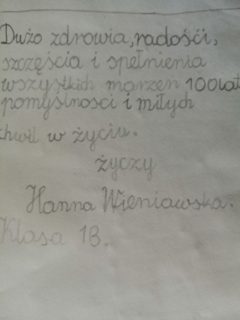 Dużo zdrowia, radości,
szczęścia i spełnienia
wszystkich marzen 100lat
pomyślności i miłych
chwil w życiu.
życzy
Hanna Wieniawska.
Klasa 1B.